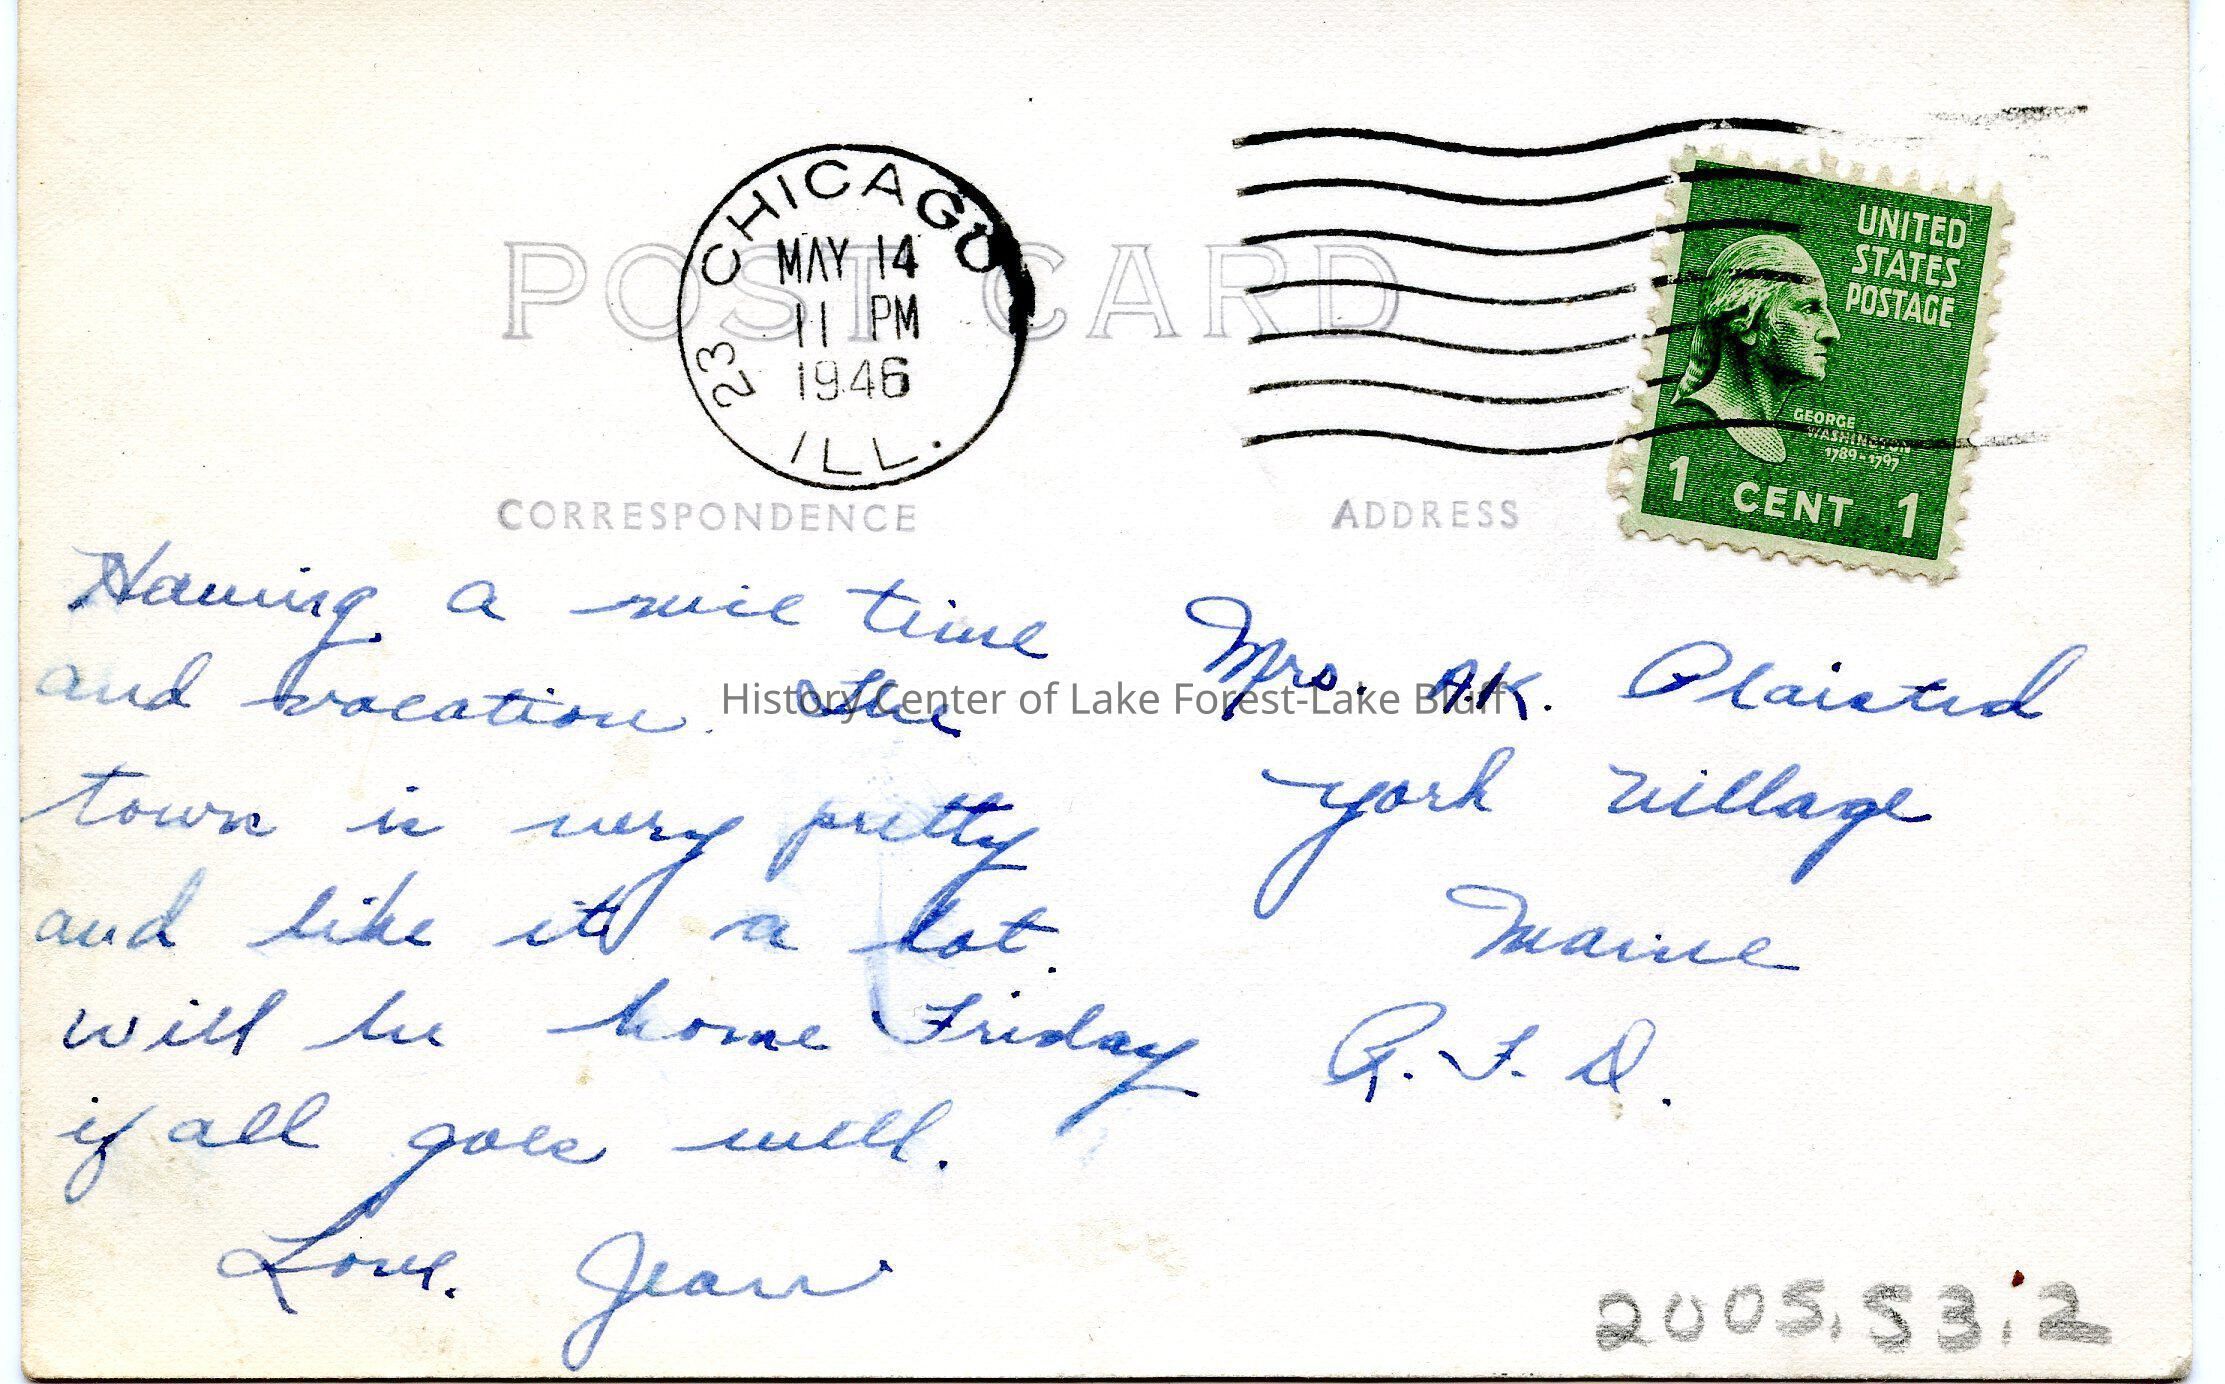 CHICAGO
MAY 14
11 PM
1946
23
ILL.
POST CARD
UNITED
STATES
POSTAGE
GEORGE
WASHINGTON
1789-1797
1 CENT 1
CORRESPONDENCE
ADDRESS
Having a nice time
and vacation. The
town is very pretty
and like it a lot.
will be home Friday
if all goes well.
Love. Jean
Mrs. A.K. Plaisted
York Village
Maine
R.F.D.
History Center of Lake Forest-Lake Bluff
2005.53.2